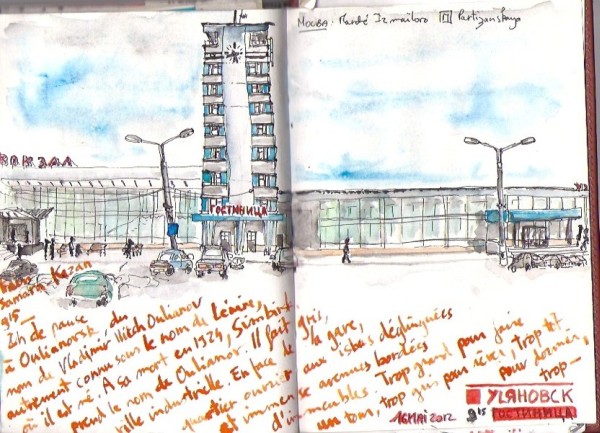 МОСВА : Marché Izmailovo Partizanskaya
ВОКЗАЛ
ГОСТИНИЦА
Samara - Kazan
9h15 —
2h de pause
à Oulianovsk, du
nom de Vladimir Ilitch Oulianov
autrement connu sous le nom de Lénine,
où il est né. A sa mort en 1924, Simbirsk
prend le nom de Oulianov. Il fait
ville industrielle. En face de
quartier ouvrier
et immenses
gris,
la gare,
aux isbas déglinguées
se avenues bordées
d'immeubles. Trop grand pour faire
un tour, trop gris pour rêver, trop tôt
pour dormir,
trop —
16 MAI 2012
9h15
УЛЯНОВСК
ГОСТИНИЦА